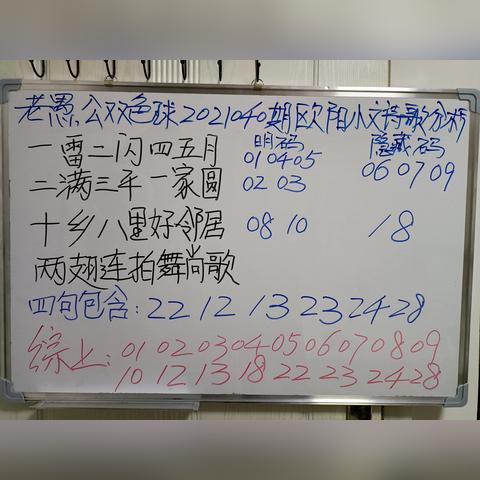 老愚公双色球2021040期欧阳小文特歌分析
明码 隐藏码
一雷二闪四五月 01 04 05 06 07 09
二满三平一家圆 02 03
十乡八里好邻居 08 10 18
两翅连拍舞尚歌
四句包含：22 12 13 23 24 28
综上：01 02 03 04 05 06 07 08 09
10 12 13 18 22 23 24 28